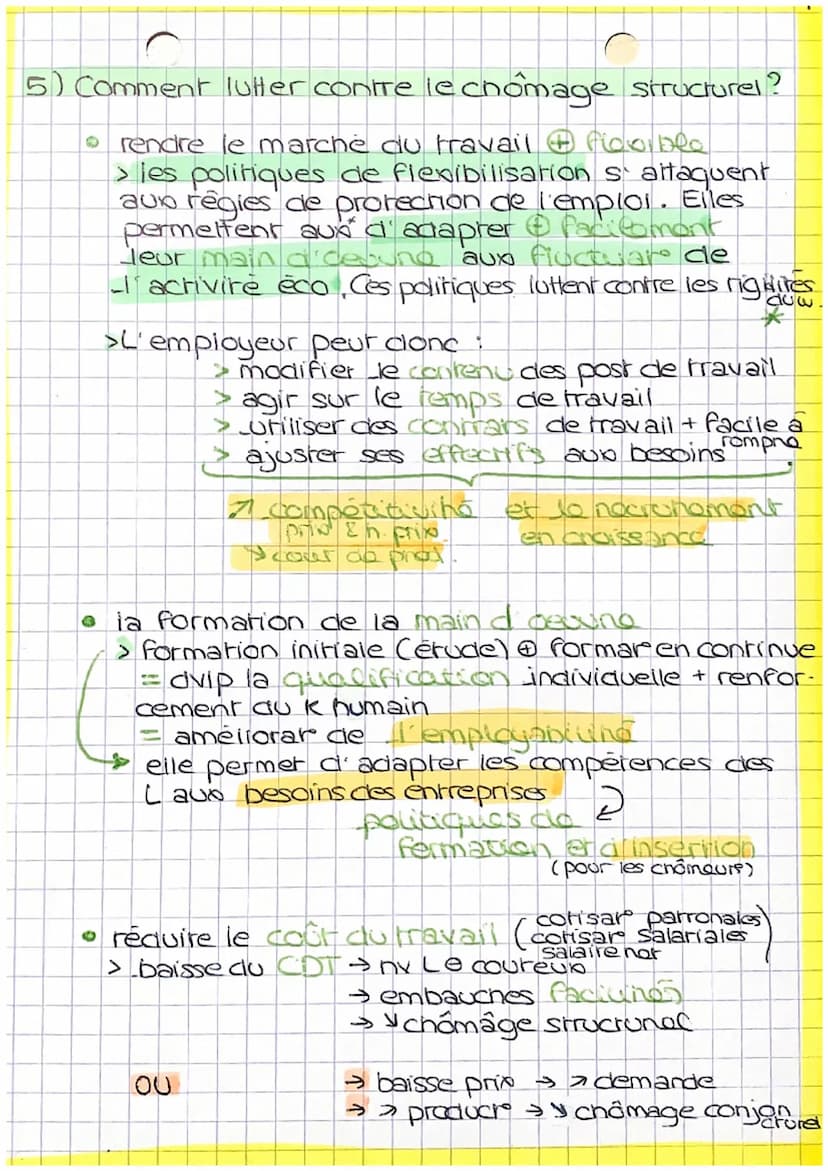 5) Comment lutter contre le chômage structurel ?
• rendre le marché du travail ⊕ flexible
> les politiques de flexibilisation s' attaquent
aux règles de protection de l'emploi. Elles
permettent aux* d'adapter ⊕ facilement
leur main d'oeuvre aux fluctuat° de
l'activité éco. Ces politiques luttent contre les rigidités
du w.
*
> L'employeur peut donc :
> modifier le contenu des post de travail
> agir sur le temps de travail
> utiliser des contrats de travail + facile à
rompre
> ajuster ses effectifs aux besoins
↗ compétitivité et le
prix & h. prix en croissance
↘ cout de prod.
• la formation de la main d'oeuvre
> formation initiale (étude) ⊕ format° en continue
= dvlp la qualification individuelle + renfor-
cement du K humain
= améliorat° de l'employabilité
elle permet d'adapter les compétences des
L aux besoins des entreprises
politiques de
formation et d'insertion
(pour les chômeurs)
• réduire le coût du travail (cotisat° patronales
cotisat° salariales
salaire net)
> baisse du CDT → nv L⊖ couteux
→ embauches facilitées
→ ↘ chômâge structurel
OU → baisse prix → ↗ demande
→ ↗ product° → ↘ chômage conjon
cturel